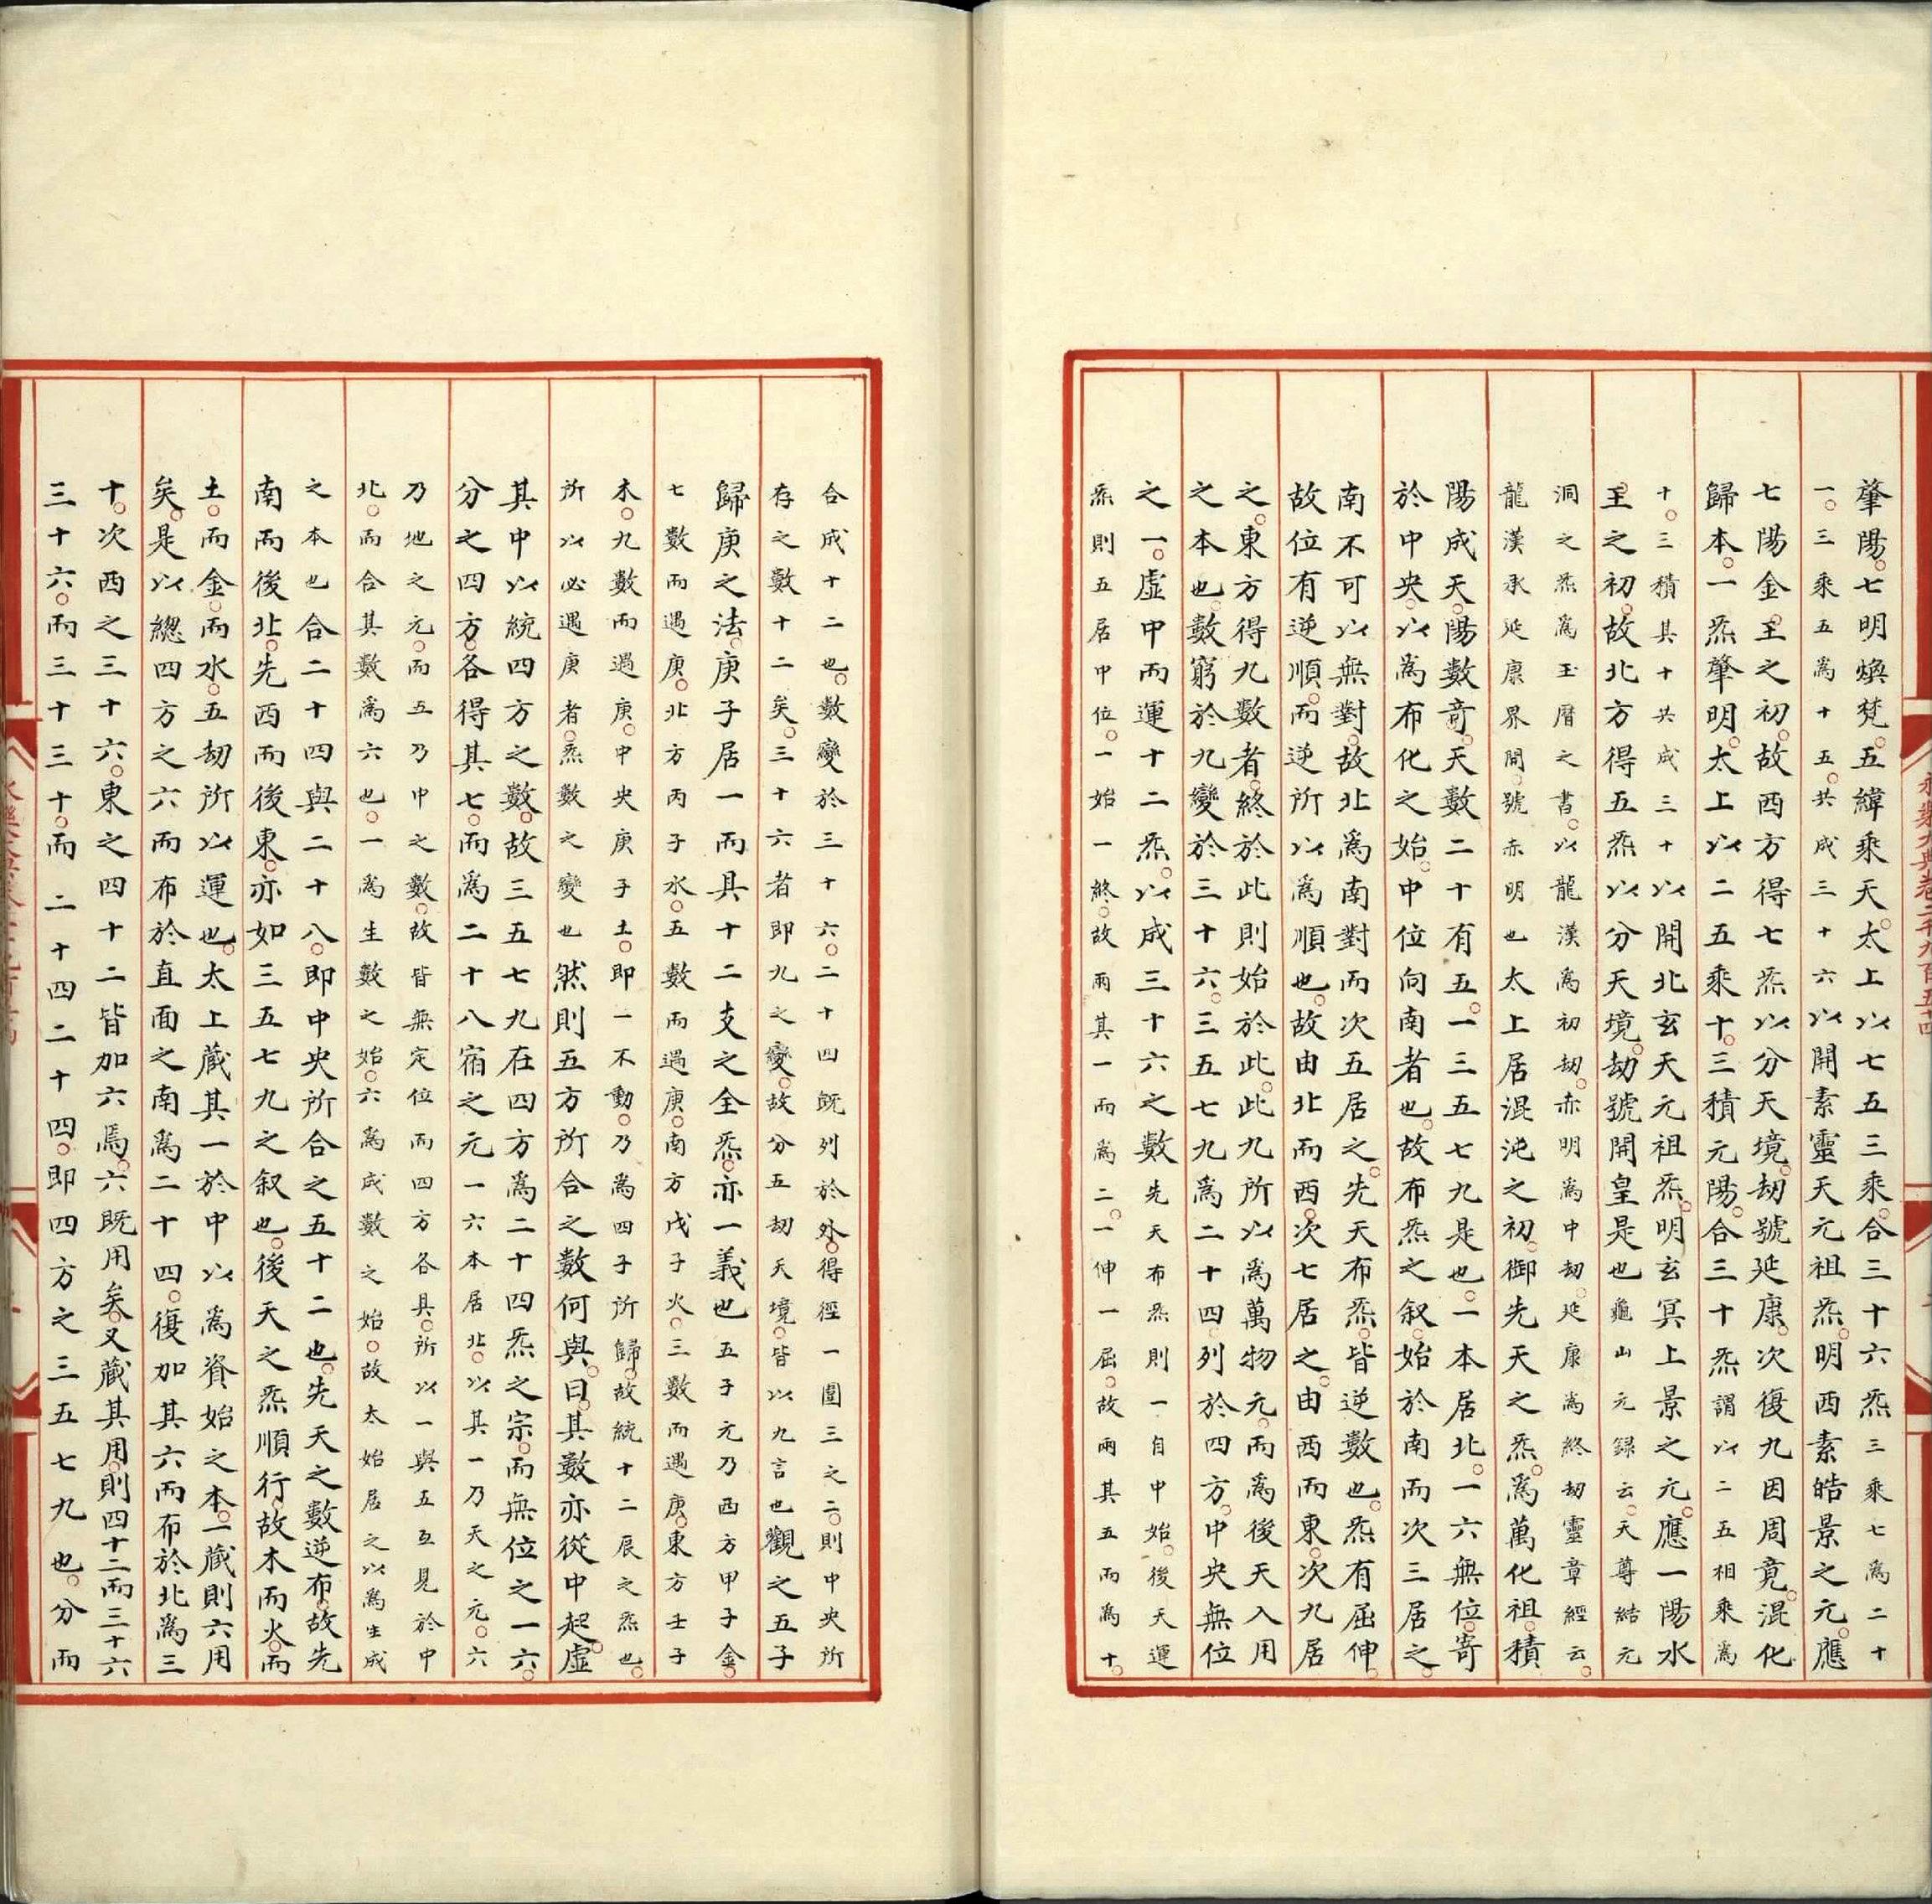 肇陽。七明煥梵。五緯乘天。太上以七五三乘。合三十六炁三乘七為二十
一。三乘五為十五。共成三十六以開素靈天元祖炁。明西素皓景之元。應
七陽金。王之初。故西方得七炁以分天境。劫號延康。次復九因周竟。混化
歸本。一炁肇明。太上以二五乘十。三積元陽。合三十炁謂以二五相乘為
十。三積其十十共成三十以開北玄天元祖炁。明玄冥上景之元。應一陽水
王之初。故北方得五炁以分天境。劫號開皇是也龜山元録云。天尊結元
洞之炁為玉曆之書。以龍漢為初劫。赤明為中劫。延康為終劫靈章經云。
龍漢承延康界開。號赤明也太上居混沌之初。御先天之炁。為萬化祖。積
陽成天。陽數奇。天數二十有五。一三五七九是也。一本居北。一六無位。寄
於中央。以為布化之始。中位向南者也。故布炁之叙。始於南而次三居之。
南不可以無對。故北為南對而次五居之。先天布炁。皆逆數也。炁有屈伸。
故位有逆順。而逆所以為順也。故由北而西。次七居之。由西而東。次九居
之。東方得九數者。終於此則始於此。此九所以為萬物元。而為後天入用
之本也。數窮於九變於三十六。三五七九為二十四。列於四方。中央無位
之一。虛中而運十二炁。以成三十六之數先天布炁則一自中始。後天運
炁則五居中位。一始一終。故兩其一而為二。一伸一屈。故兩其五而為十。
合成十二也。數變於三十六。二十四既列於外。得徑一圍三之二。則中央所
存之數十二矣。三十六者即九之變。故分五劫天境。皆以九言也觀之五子
歸庚之法。庚子居一而具十二支之全炁。亦一義也五子元乃西方甲子金。
七數而遇庚。北方丙子水。五數而遇庚。南方戊子火。三數而遇庚。東方壬子
木。九數而遇庚。中央庚子土。即一不動。乃為四子所歸。故統十二辰之炁也。
所以必遇庚者。炁數之變也然則五方所合之數何與。曰。其數亦從中起。虛
其中以統四方之數。故三五七九在四方為二十四炁之宗。而無位之一六。
分之四方。各得其七。而為二十八宿之元一六本居北。以其一乃天之元。六
乃地之元。而五乃中之數。故皆無定位而四方各具。所以一與五互見於中
北。而合其數為六也。一為生數之始。六為成數之始。故太始居之以為生成
之本也合二十四與二十八。即中央所合之五十二也。先天之數逆布。故先
南而後北。先西而後東。亦如三五七九之叙也。後天之炁順行。故木而火。而
土。而金。而水。五劫所以運也。太上藏其一於中以為資始之本。一藏則六用
矣。是以總四方之六而布於直面之南為二十四。復加其六而布於北為三
十。次西之三十六。東之四十二皆加六焉。六既用矣。又藏其用。則四十二而三十六
三十六。而三十三十。而二十四二十四。即四方之三五七九也。分而